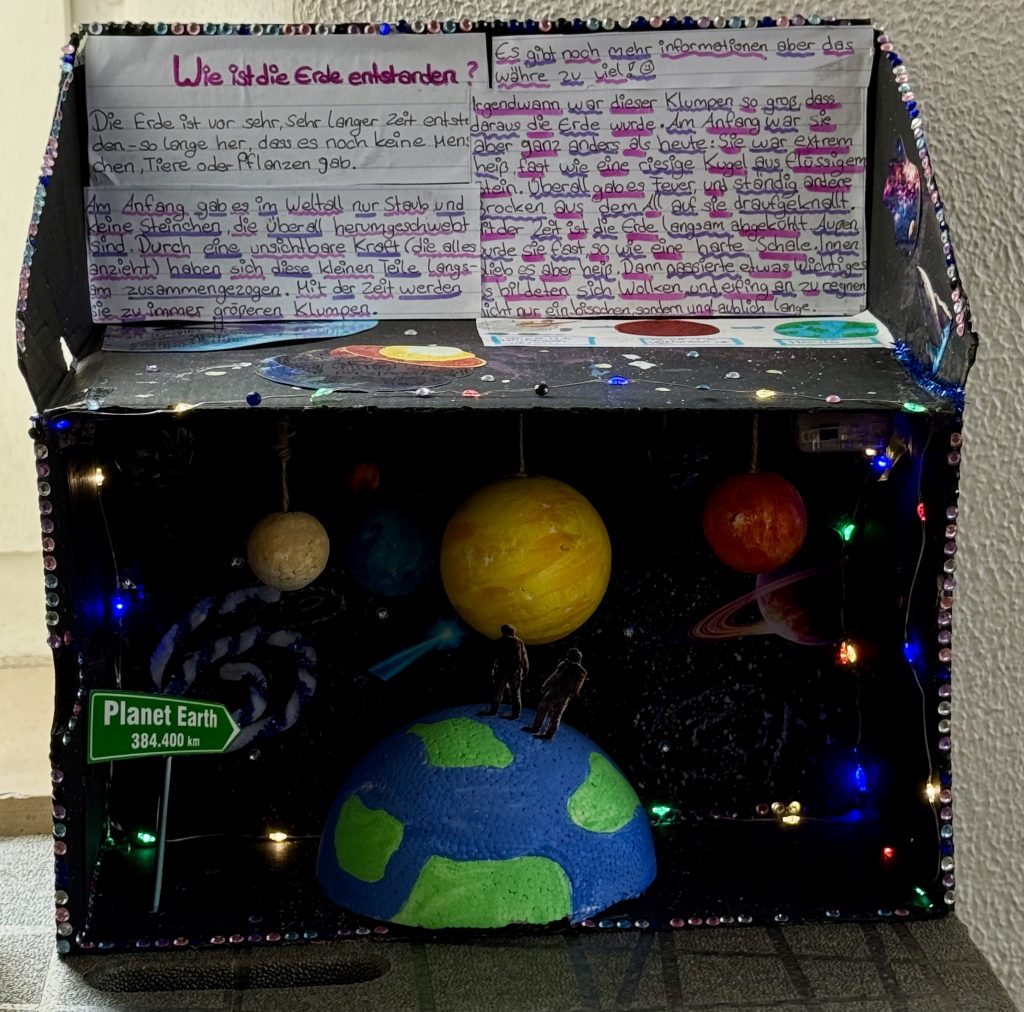 Wie ist die Erde entstanden ?
Die Erde ist vor sehr, sehr langer Zeit entste
den-so lange her, dass es noch keine Men
chen, Tiere oder Pflanzen gab.
Am Anfang gab es im Weltall nur Staub und
kleine Steinchen, die überall herumgeschwebt
sind. Durch eine unsichtbare Kraft (die alles
anzieht) haben sich diese kleinen Teile langs-
am zusammengezogen. Mit der Zeit werden
sie zu immer größeren Klumpen.
Es gibt noch mehr informationen aber das
währe zu viel!
Irgendwann war dieser Klumpen so groß, dass
daraus die Erde wurde. Am Anfang war sie
aber ganz anders als heute: Sie war extrem
heiß fast wie eine riesige Kugel aus flüssigem
tein. Überall gab es feuer, und ständig andere
rocken aus dem All auf sie draufgeknallt.
it der Zeit ist die Erde langsam abgekühlt. Außen
urde sie fast so wie eine harte Schale. Innen
lieb es aber heiß. Dann passierte etwas wichtiges
bildeten sich Wolken, und es fing an zu regnen
icht nur ein bisschen, sondern unglaublich lange.
Planet Earth
384.400 km